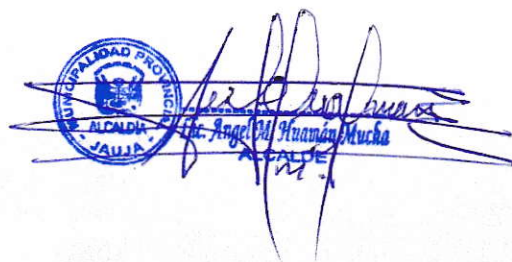 MUNICIPALIDAD PROVINCIAL
ALCALDIA
JAUJA
Lic. Angel M. Huamán Mucha
ALCALDE